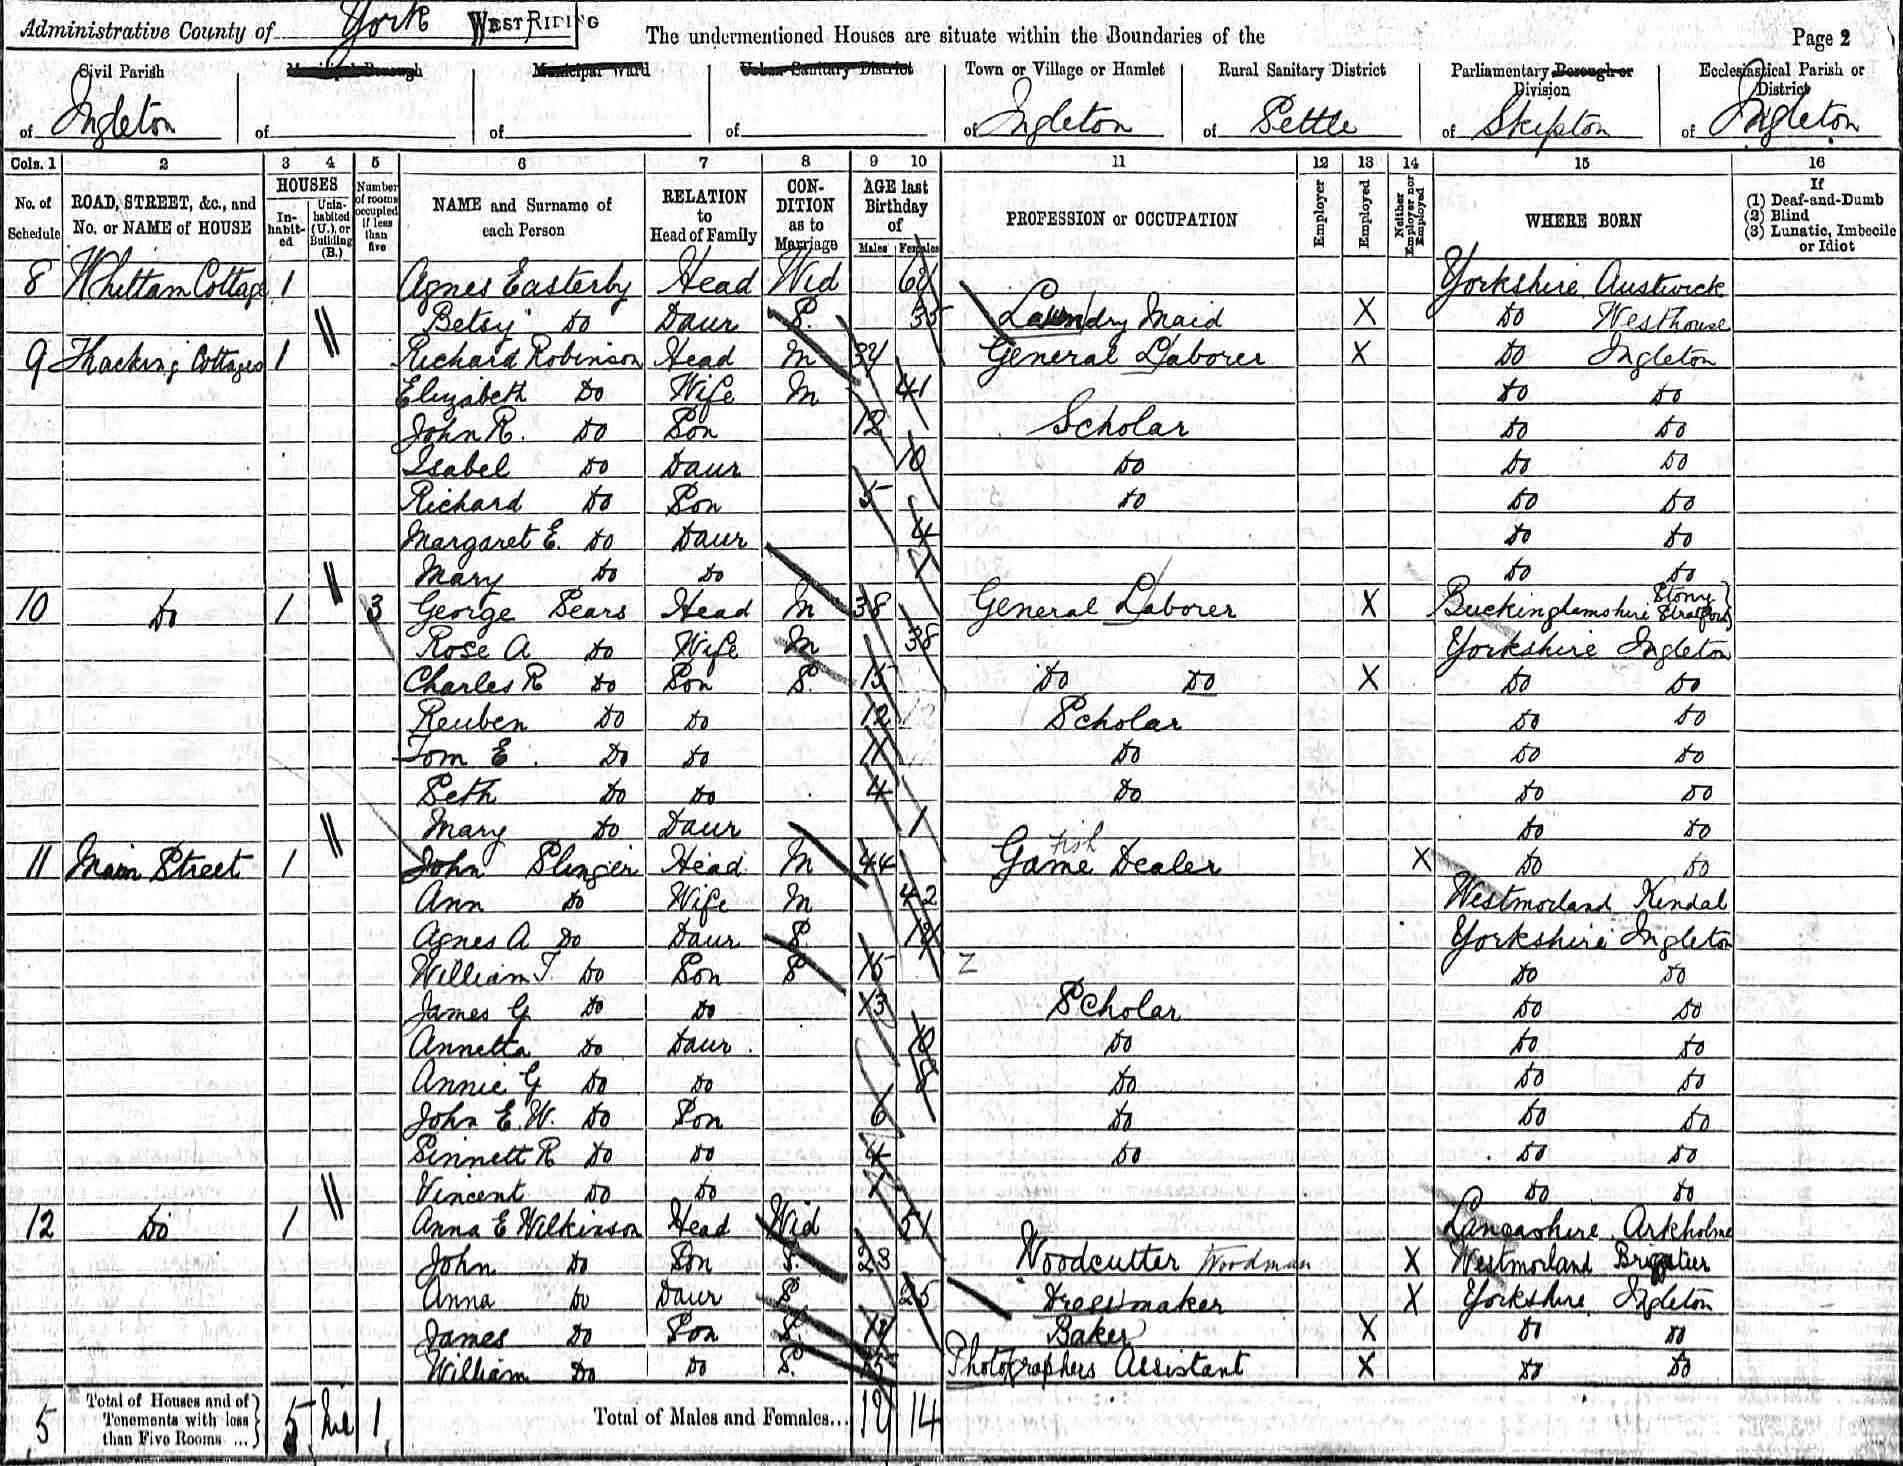 Administrative County of York WEST RIDING The undermentioned Houses are situate within the Boundaries of the Page 2
Civil Parish Municipal Borough Municipal Ward Urban Sanitary District Town or Village or Hamlet Rural Sanitary District Parliamentary Borough or Division Ecclesiastical Parish or District
of Ingleton of of of of Ingleton of Settle of Skipton of Ingleton
Cols. 1 2 3 4 5 6 7 8 9 10 11 12 13 14 15 16
No. of Schedule ROAD, STREET, &c., and No. or NAME of HOUSE HOUSES In-habit-ed Unin-habited (U.), or Building (B.) Number of rooms occupied if less than five NAME and Surname of each Person RELATION to Head of Family CON-DITION as to Marriage AGE last Birthday of Males Females PROFESSION or OCCUPATION Employer Employed Neither Employer nor Employed WHERE BORN If (1) Deaf-and-Dumb (2) Blind (3) Lunatic, Imbecile or Idiot
8 Whittam Cottage 1 Agnes Easterby Head Wid Yorkshire Austwick
Betsy Do Daur S. 35 Laundry Maid X Do Westhouse
9 Thacking Cottages 1 Richard Robinson Head M General Laborer X Do Ingleton
Elizabeth Do Wife M 41 Do Do
John R. Do Son 12 Scholar Do Do
Isabel Do Daur 10 Do Do Do
Richard Do Son 5 Do Do Do
Margaret E. Do Daur 4 Do Do
Mary Do Do 1 Do Do
10 Do 1 3 George Sears Head M 38 General Laborer X Buckinghamshire Stony Stratford
Rose A Do Wife M 38 Yorkshire Ingleton
Charles R Do Son S. 15 Do Do X Do Do
Reuben Do Do 12 Scholar Do Do
Tom E. Do Do 11 Do Do Do
Seth Do Do 4 Do Do Do
Mary Do Daur 1 Do Do
11 Main Street 1 John Slinger Head M 44 Game Fish Dealer X Do Do
Ann Do Wife M 42 Westmorland Kendal
Agnes A Do Daur S. Yorkshire Ingleton
William T. Do Son S 15 Z Do Do
James G Do Do 13 Scholar Do Do
Annetta Do Daur 10 Do Do Do
Annie G Do Do 8 Do Do Do
John E. W. Do Son 6 Do Do Do
Sinnett R Do Do 4 Do Do Do
Vincent Do Do 1 Do Do
12 Do 1 Anna E Wilkinson Head Wid 51 Lancashire Arkholme
John Do Son S. 28 Woodcutter Woodman X Westmorland
Anna Do Daur S 25 Dressmaker X Yorkshire Ingleton
James Do Son S. Baker X Do Do
William Do Do S. 15 Photographers Assistant X Do Do
5 Total of Houses and of Tenements with less than Five Rooms ... 5 Nil 1 Total of Males and Females... 14